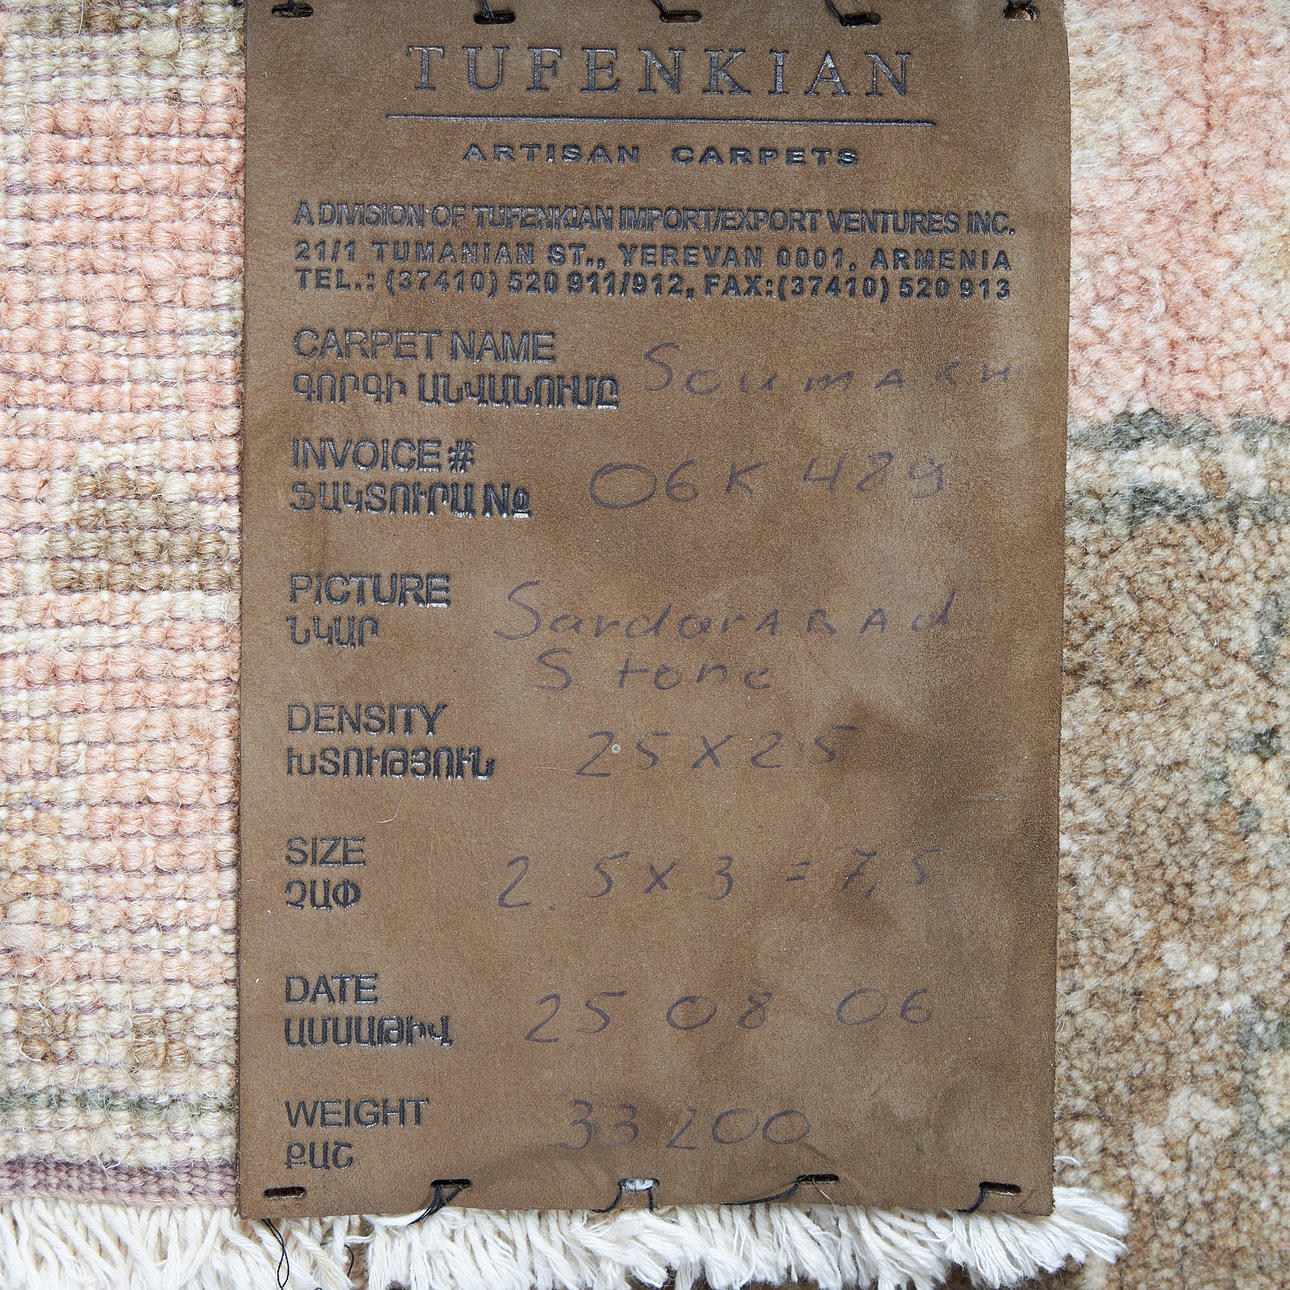 TUFENKIAN
ARTISAN CARPETS
A DIVISION OF TUFENKIAN IMPORT/EXPORT VENTURES INC.
21/1 TUMANIAN ST., YEREVAN 0001, ARMENIA
TEL.: (37410) 520 911/912, FAX:(37410) 520 913
CARPET NAME
ԳՈՐԳԻ ԱՆՎԱՆՈՒՄԸ Soumakh
INVOICE #
ՖԱԿՏՈՒՐԱ № 06K 489
PICTURE
ՆԿԱՐ Sardarabad
Stone
DENSITY
ԽՏՈՒԹՅՈՒՆ 25x25
SIZE
ՉԱՓ 2.5x3 = 7,5
DATE
ԱՄՍԱԹԻՎ 25 08 06
WEIGHT
ՔԱՇ 33 200